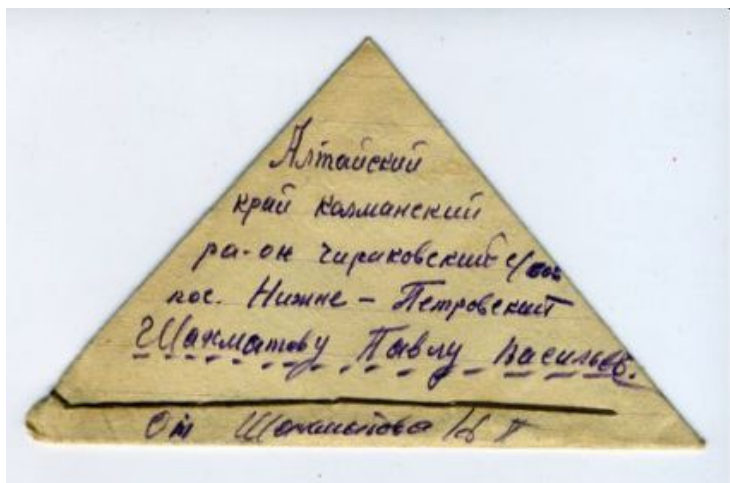 Алтайский
край Калманский
ра-он Чириковский с/сов
пос. Нижне - Петровский
Шахматову Павлу Васильев.
От Шахматова